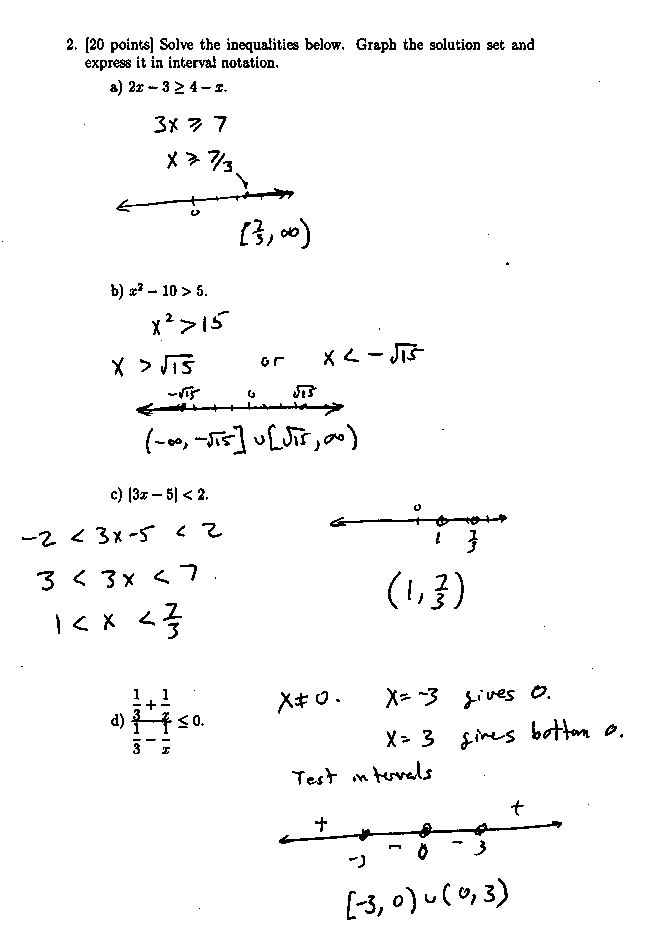 2. [20 points] Solve the inequalities below. Graph the solution set and
express it in interval notation.
a) 2x − 3 ≥ 4 − x.
3x ≥ 7
x ≥ 7/3
0
[7/3, ∞)
b) x² − 10 > 5.
x² > 15
x > √15 or x < −√15
−√15 0 √15
(−∞, −√15] ∪ [√15, ∞)
c) |3x − 5| < 2.
−2 < 3x−5 < 2
3 < 3x < 7
1 < x < 7/3
0
1 7/3
(1, 7/3)
d) (1/3 + 1/x)/(1/3 − 1/x) ≤ 0.
x ≠ 0. x = −3 gives 0.
x = 3 gives bottom 0.
Test intervals
+ +
−3 − 0 − 3
[−3, 0) ∪ (0, 3)